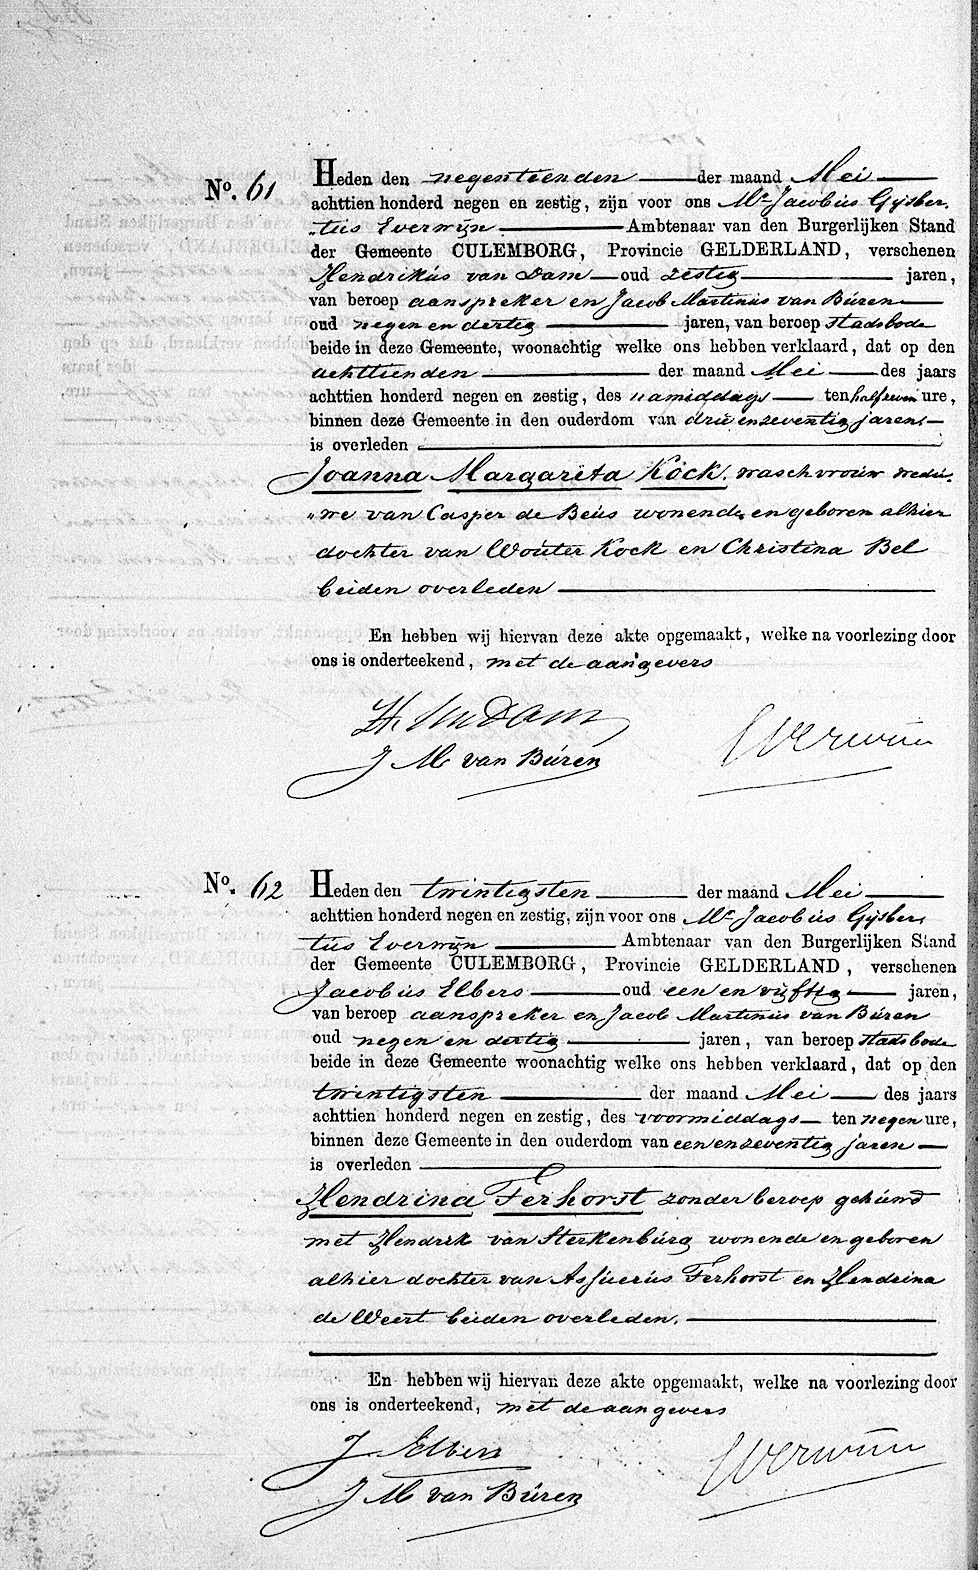 No. 61
Heden den negentienden der maand Mei
achttien honderd negen en zestig, zijn voor ons Mr Jacobus Gijsber,
„tus Everwijn Ambtenaar van den Burgerlijken Stand
der Gemeente CULEMBORG, Provincie GELDERLAND, verschenen
Hendrikus van Dam oud zestig jaren,
van beroep aanspreker en Jacob Martinus van Buren
oud negen en dertig jaren, van beroep stadsbode
beide in deze Gemeente, woonachtig welke ons hebben verklaard, dat op den
achttienden der maand Mei des jaars
achttien honderd negen en zestig, des namiddags ten half zeven ure,
binnen deze Gemeente in den ouderdom van drie en zeventig jaren,
is overleden
Joanna Margareta Kock, waschvrouw wedu,
„we van Casper de Beus wonende en geboren alhier
dochter van Wouter Kock en Christina Bel
beiden overleden
En hebben wij hiervan deze akte opgemaakt, welke na voorlezing door
ons is onderteekend, met de aangevers
H. van Dam
J M van Buren
Everwijn
No. 62
Heden den twintigsten der maand Mei
achttien honderd negen en zestig, zijn voor ons Mr Jacobus Gijsber,
tus Everwijn Ambtenaar van den Burgerlijken Stand
der Gemeente CULEMBORG, Provincie GELDERLAND, verschenen
Jacobus Elbers oud een en vijftig jaren,
van beroep aanspreker en Jacob Martinus van Buren
oud negen en dertig jaren, van beroep stadsbode
beide in deze Gemeente woonachtig welke ons hebben verklaard, dat op den
twintigsten der maand Mei des jaars
achttien honderd negen en zestig, des voormiddags ten negen ure,
binnen deze Gemeente in den ouderdom van een en zeventig jaren
is overleden
Hendrina Ferhorst zonder beroep gehuwd
met Hendrik van Sterkenburg wonende en geboren
alhier dochter van Assuerus Ferhorst en Hendrina
de Weert beiden overleden.
En hebben wij hiervan deze akte opgemaakt, welke na voorlezing door
ons is onderteekend, met de aangevers
J Elbers
J M van Buren
Everwijn